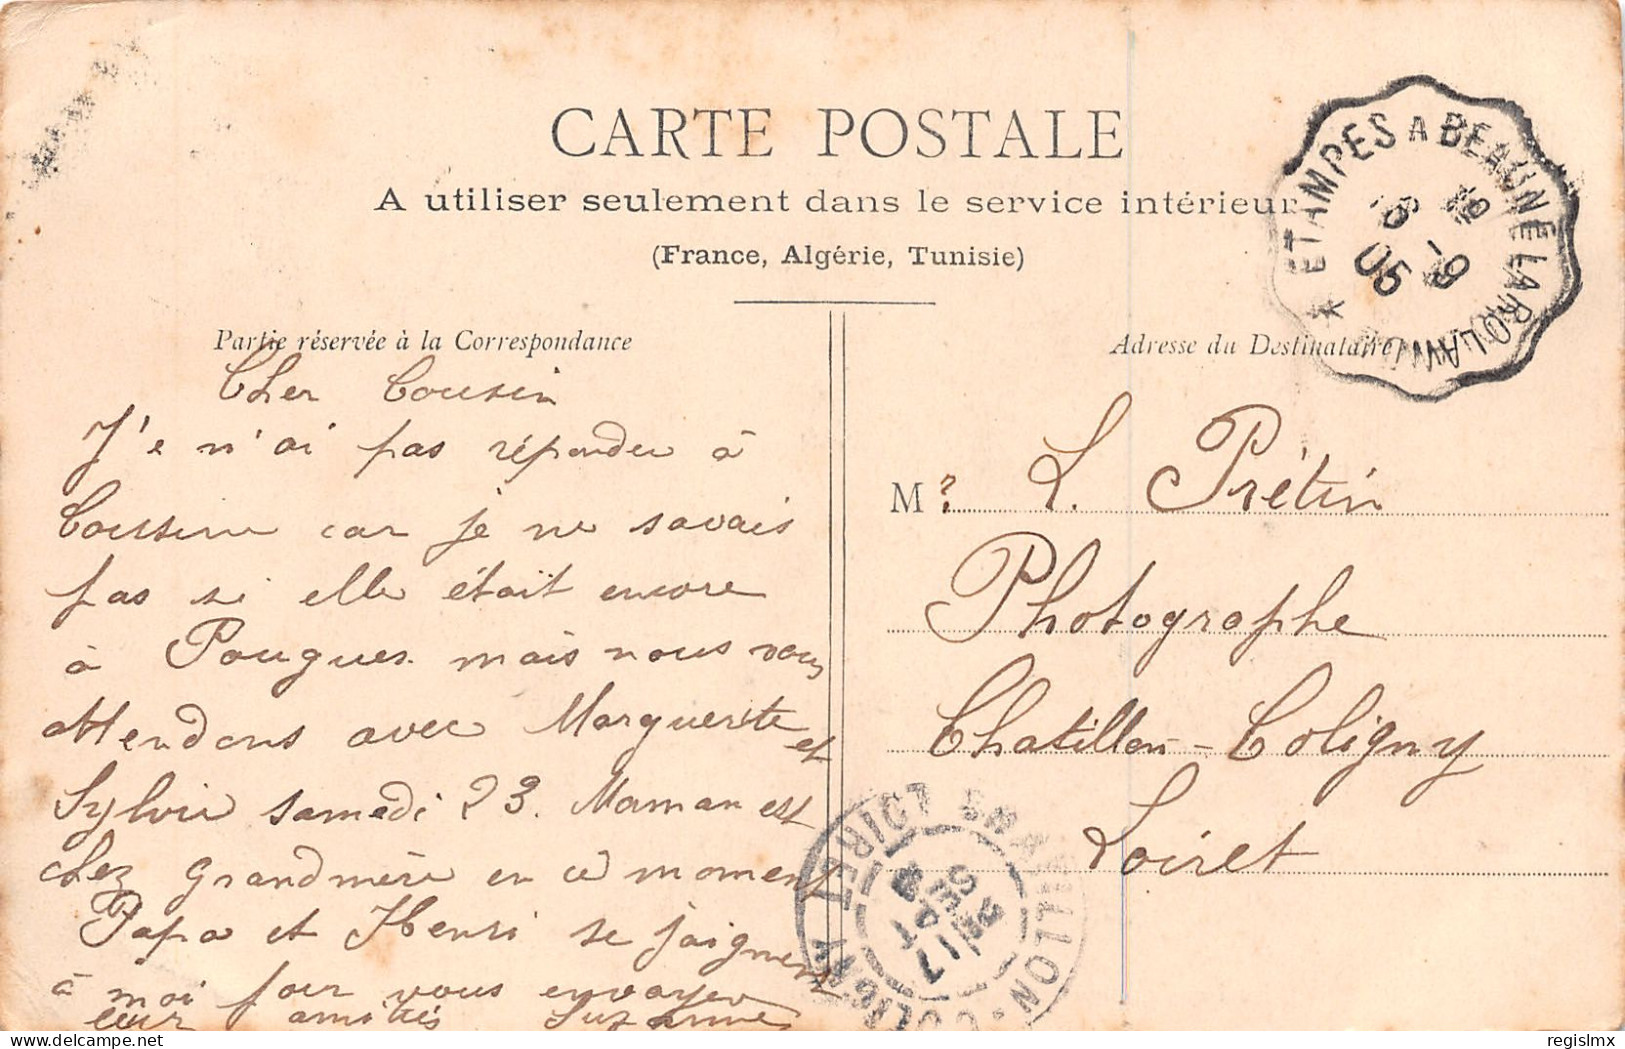 CARTE POSTALE
A utiliser seulement dans le service intérieur
(France, Algérie, Tunisie)
ETAMPES A BEAUNE LA ROLANDE
16 -9
05
Partie réservée à la Correspondance
Cher Cousin
J'e n'ai pas répondu à
Cousine car je ne savais
pas si elle était encore
à Pougues mais nous vous
attendons avec Marguerite et
Sylvie samedi 23. Maman est
chez grandmère en ce moment
Papa et Henri se joignent
à moi pour vous envoyer
leur amitiés Suzanne
Adresse du Destinataire
Mr. L. Prétin
Photographe
Chatillon-Coligny
Loiret
CHATILLON-COLIGNY LOIRET
17
SEPT
regislmx